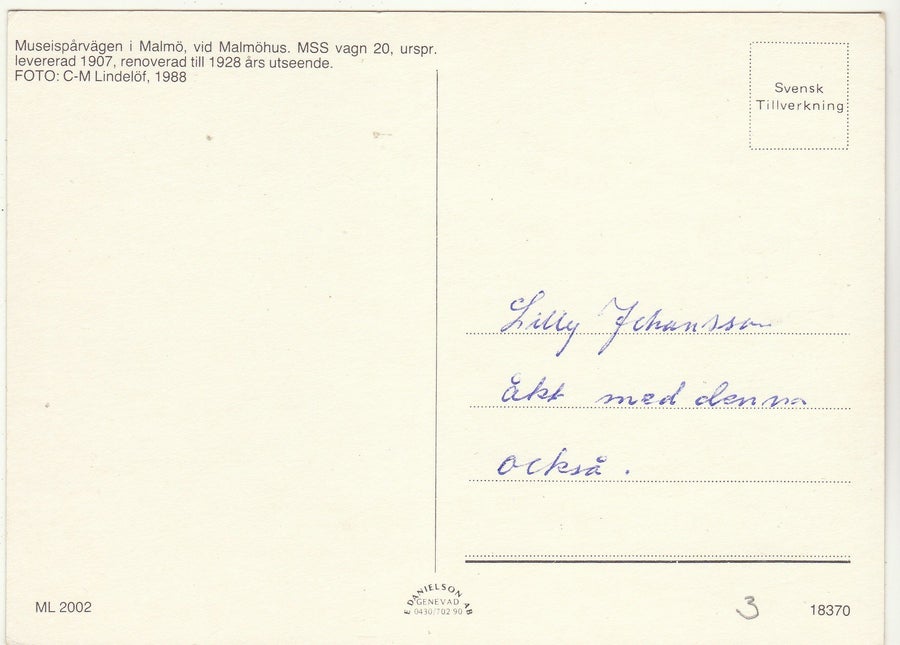 Museispårvägen i Malmö, vid Malmöhus. MSS vagn 20, urspr.
levererad 1907, renoverad till 1928 års utseende.
FOTO: C-M Lindelöf, 1988
Svensk
Tillverkning
Lilly Johansson
åkt med denna
också.
ML 2002
E DANIELSON AB
GENEVAD
0430/702 90
3
18370